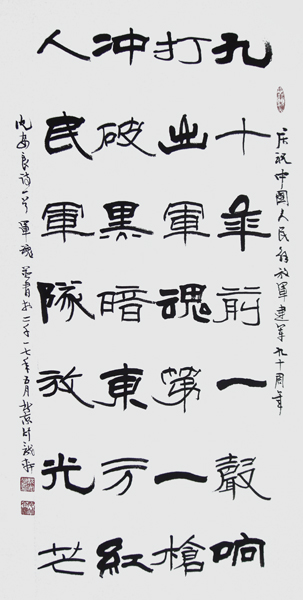 庆祝中國人民解放軍建军九十周年
九十年前一聲响
打出軍魂第一槍
冲破黑暗東方紅
人民軍隊放光芒
良诗一首軍魂書於二千一七年五月